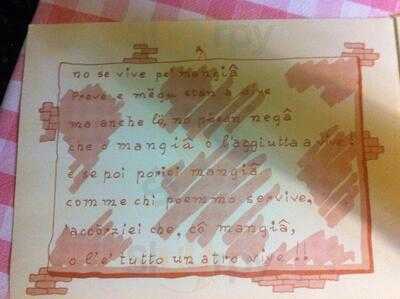 no se vive pe' mangiâ
Preve e mêgu stan a dîve
ma anche lô, no pêsan negâ
che o mangiâ o l'aggiutta a vive!
e se poi porieì mangiâ
comme chi poemmo servive,
accorziei che, cô mangiâ,
o l'e' tutto un atro vive!!